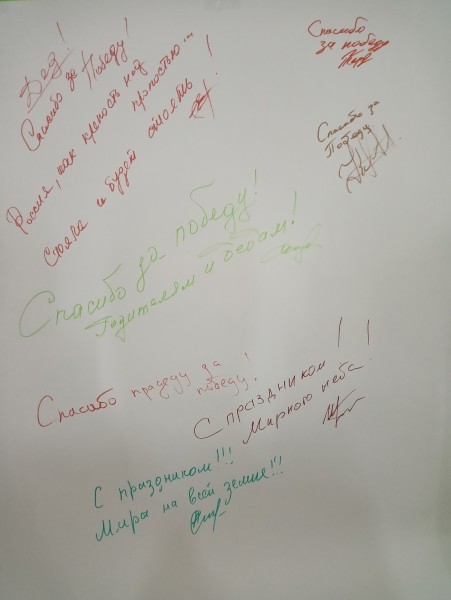 Дед!
Спасибо за Победу!
Россия, как крепость над
пропостью...
Стояла и будет стоять!
Спасибо
за победу
Спасибо за
Победу
Спасибо за победу!
Родителям и Дедам!
Спасибо прадеду за
победу!
С праздником!
Мирного неба!
С праздником!!!
Мира на всей земле!!!